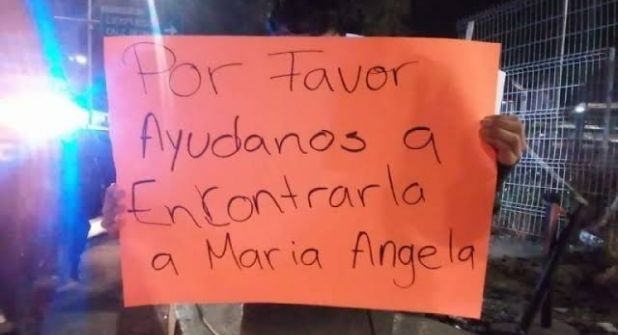 Por Favor
Ayudanos a
Encontrarla
a Maria Angela